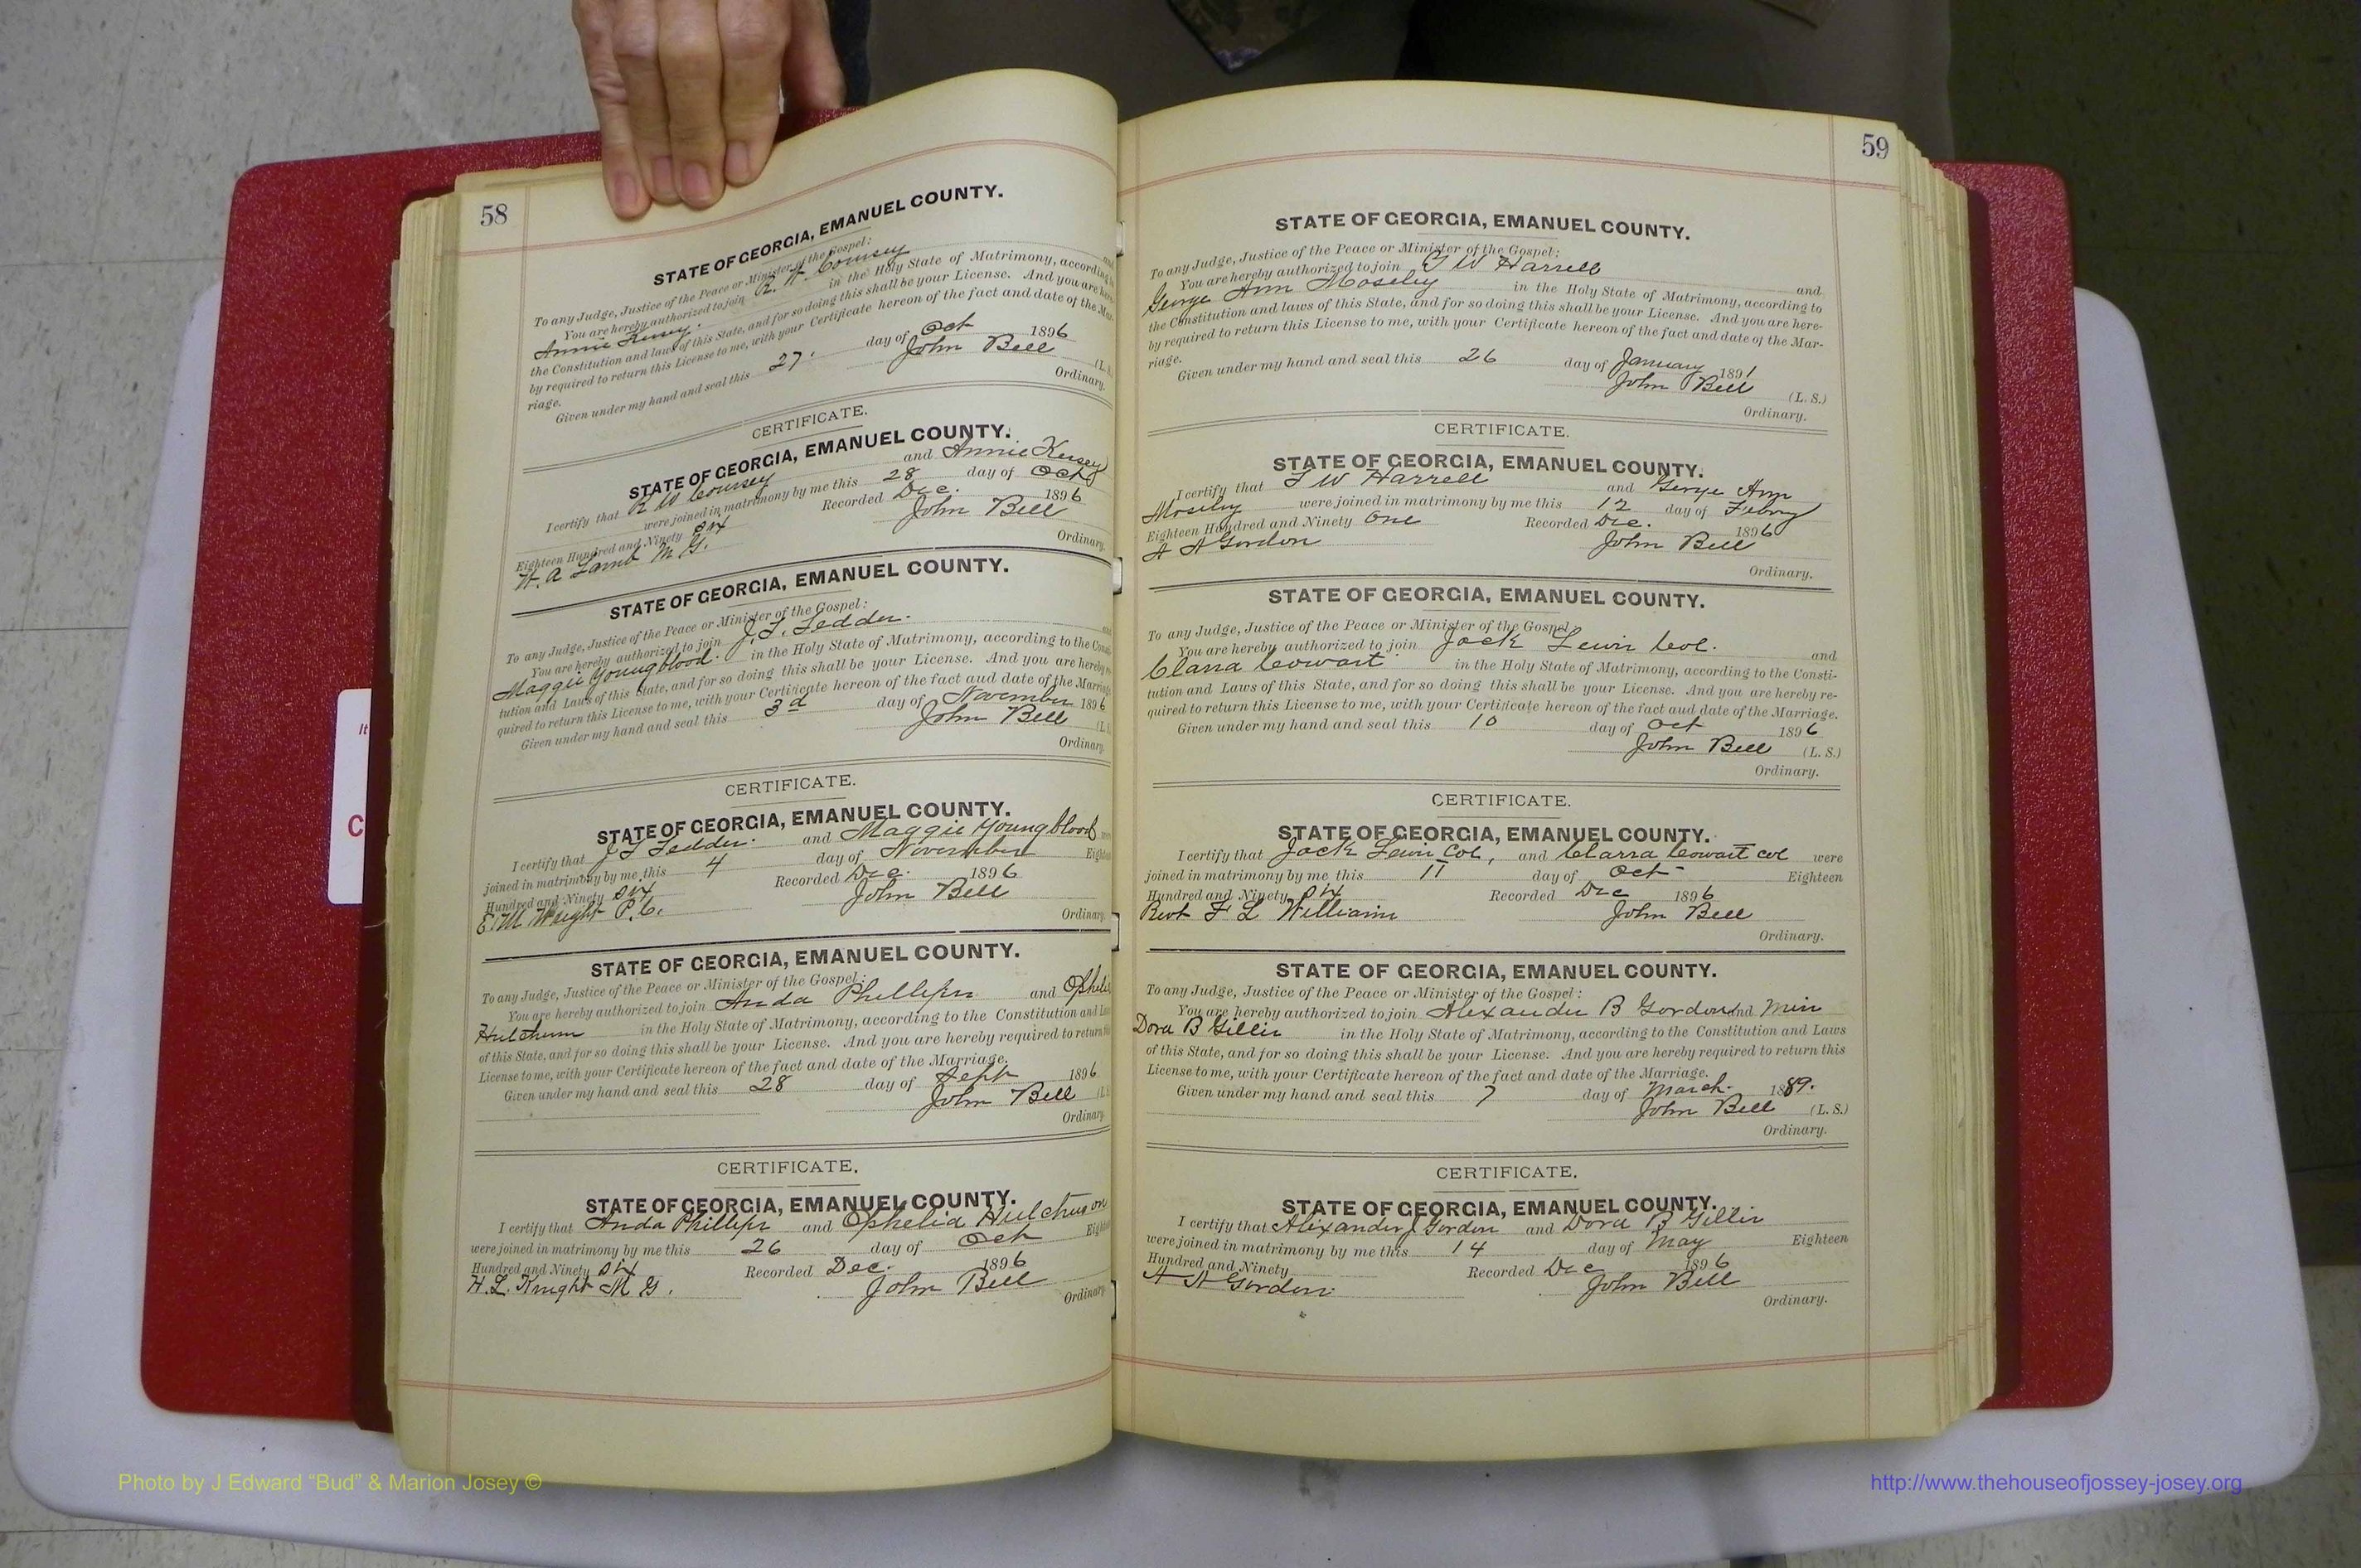 58
STATE OF GEORGIA, EMANUEL COUNTY.
To any Judge, Justice of the Peace or Minister of the Gospel:
You are hereby authorized to join R. W. Coursey and
Annie Kersey. in the Holy State of Matrimony, according to
the Constitution and laws of this State, and for so doing this shall be your License. And you are here-
by required to return this License to me, with your Certificate hereon of the fact and date of the Mar-
riage.
Given under my hand and seal this 27. day of Oct 1896
John Bell (L.S.
Ordinary.
CERTIFICATE.
STATE OF GEORGIA, EMANUEL COUNTY.
I certify that R W Coursey and Annie Kersey
were joined in matrimony by me this 28 day of Oct
Eighteen Hundred and Ninety six Recorded Dec. 1896
W. A. Lamb M. G. John Bell
Ordinary.
STATE OF GEORGIA, EMANUEL COUNTY.
To any Judge, Justice of the Peace or Minister of the Gospel:
You are hereby authorized to join J. T. Tedder. and
Maggie Youngblood. in the Holy State of Matrimony, according to the Consti-
tution and Laws of this State, and for so doing this shall be your License. And you are hereby re-
quired to return this License to me, with your Certificate hereon of the fact and date of the Marriage.
Given under my hand and seal this 3d day of November 1896
John Bell (L.S.
Ordinary.
CERTIFICATE.
STATE OF GEORGIA, EMANUEL COUNTY.
I certify that J T Tedder. and Maggie Youngblood were
joined in matrimony by me this 4 day of November Eighteen
Hundred and Ninety six Recorded Dec. 1896
E. M. Wright P. C. John Bell
Ordinary.
STATE OF GEORGIA, EMANUEL COUNTY.
To any Judge, Justice of the Peace or Minister of the Gospel:
You are hereby authorized to join Anda Phillips and Ophelia
Hutchuson in the Holy State of Matrimony, according to the Constitution and Laws
of this State, and for so doing this shall be your License. And you are hereby required to return this
License to me, with your Certificate hereon of the fact and date of the Marriage.
Given under my hand and seal this 28 day of Sept 1896
John Bell (L.S
Ordinary.
CERTIFICATE.
STATE OF GEORGIA, EMANUEL COUNTY.
I certify that Anda Phillips and Ophelia Hutchuson
were joined in matrimony by me this 26 day of Oct Eighteen
Hundred and Ninety six Recorded Dec. 1896
H. L. Knight M G. John Bell
Ordinary.
59
STATE OF GEORGIA, EMANUEL COUNTY.
To any Judge, Justice of the Peace or Minister of the Gospel:
You are hereby authorized to join T W Harrell and
George Ann Moseley in the Holy State of Matrimony, according to
the Constitution and laws of this State, and for so doing this shall be your License. And you are here-
by required to return this License to me, with your Certificate hereon of the fact and date of the Mar-
riage.
Given under my hand and seal this 26 day of January 1891
John Bell (L. S.)
Ordinary.
CERTIFICATE.
STATE OF GEORGIA, EMANUEL COUNTY.
I certify that T W Harrell and George Ann
Moseley were joined in matrimony by me this 12 day of Febry
Eighteen Hundred and Ninety One Recorded Dec. 1896
A A Gordon John Bell
Ordinary.
STATE OF GEORGIA, EMANUEL COUNTY.
To any Judge, Justice of the Peace or Minister of the Gospel:
You are hereby authorized to join Jack Lewis Col. and
Clarra Cowart in the Holy State of Matrimony, according to the Consti-
tution and Laws of this State, and for so doing this shall be your License. And you are hereby re-
quired to return this License to me, with your Certificate hereon of the fact aud date of the Marriage.
Given under my hand and seal this 10 day of Oct 1896
John Bell (L. S.)
Ordinary.
CERTIFICATE.
STATE OF GEORGIA, EMANUEL COUNTY.
I certify that Jack Lewis Col, and Clarra Cowart col were
joined in matrimony by me this 11 day of Oct Eighteen
Hundred and Ninety six Recorded Dec 1896
Revt F L Williams John Bell
Ordinary.
STATE OF GEORGIA, EMANUEL COUNTY.
To any Judge, Justice of the Peace or Minister of the Gospel:
You are hereby authorized to join Alexander B Gordon and Miss
Dora B Gillis in the Holy State of Matrimony, according to the Constitution and Laws
of this State, and for so doing this shall be your License. And you are hereby required to return this
License to me, with your Certificate hereon of the fact and date of the Marriage.
Given under my hand and seal this 7 day of March 1889.
John Bell (L. S.)
Ordinary.
CERTIFICATE.
STATE OF GEORGIA, EMANUEL COUNTY.
I certify that Alexander J Gordon and Dora B Gillis
were joined in matrimony by me this 14 day of May Eighteen
Hundred and Ninety Recorded Dec 1896
A A Gordon John Bell
Ordinary.
Photo by J Edward “Bud” & Marion Josey ©
http://www.thehouseofjossey-josey.org